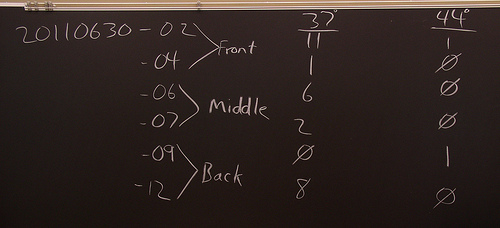 37° 44°
20110630 - 02 Front 11 1
- 04 1 Ø
- 06 Middle 6 Ø
- 07 2 Ø
- 09 Back Ø 1
- 12 8 Ø